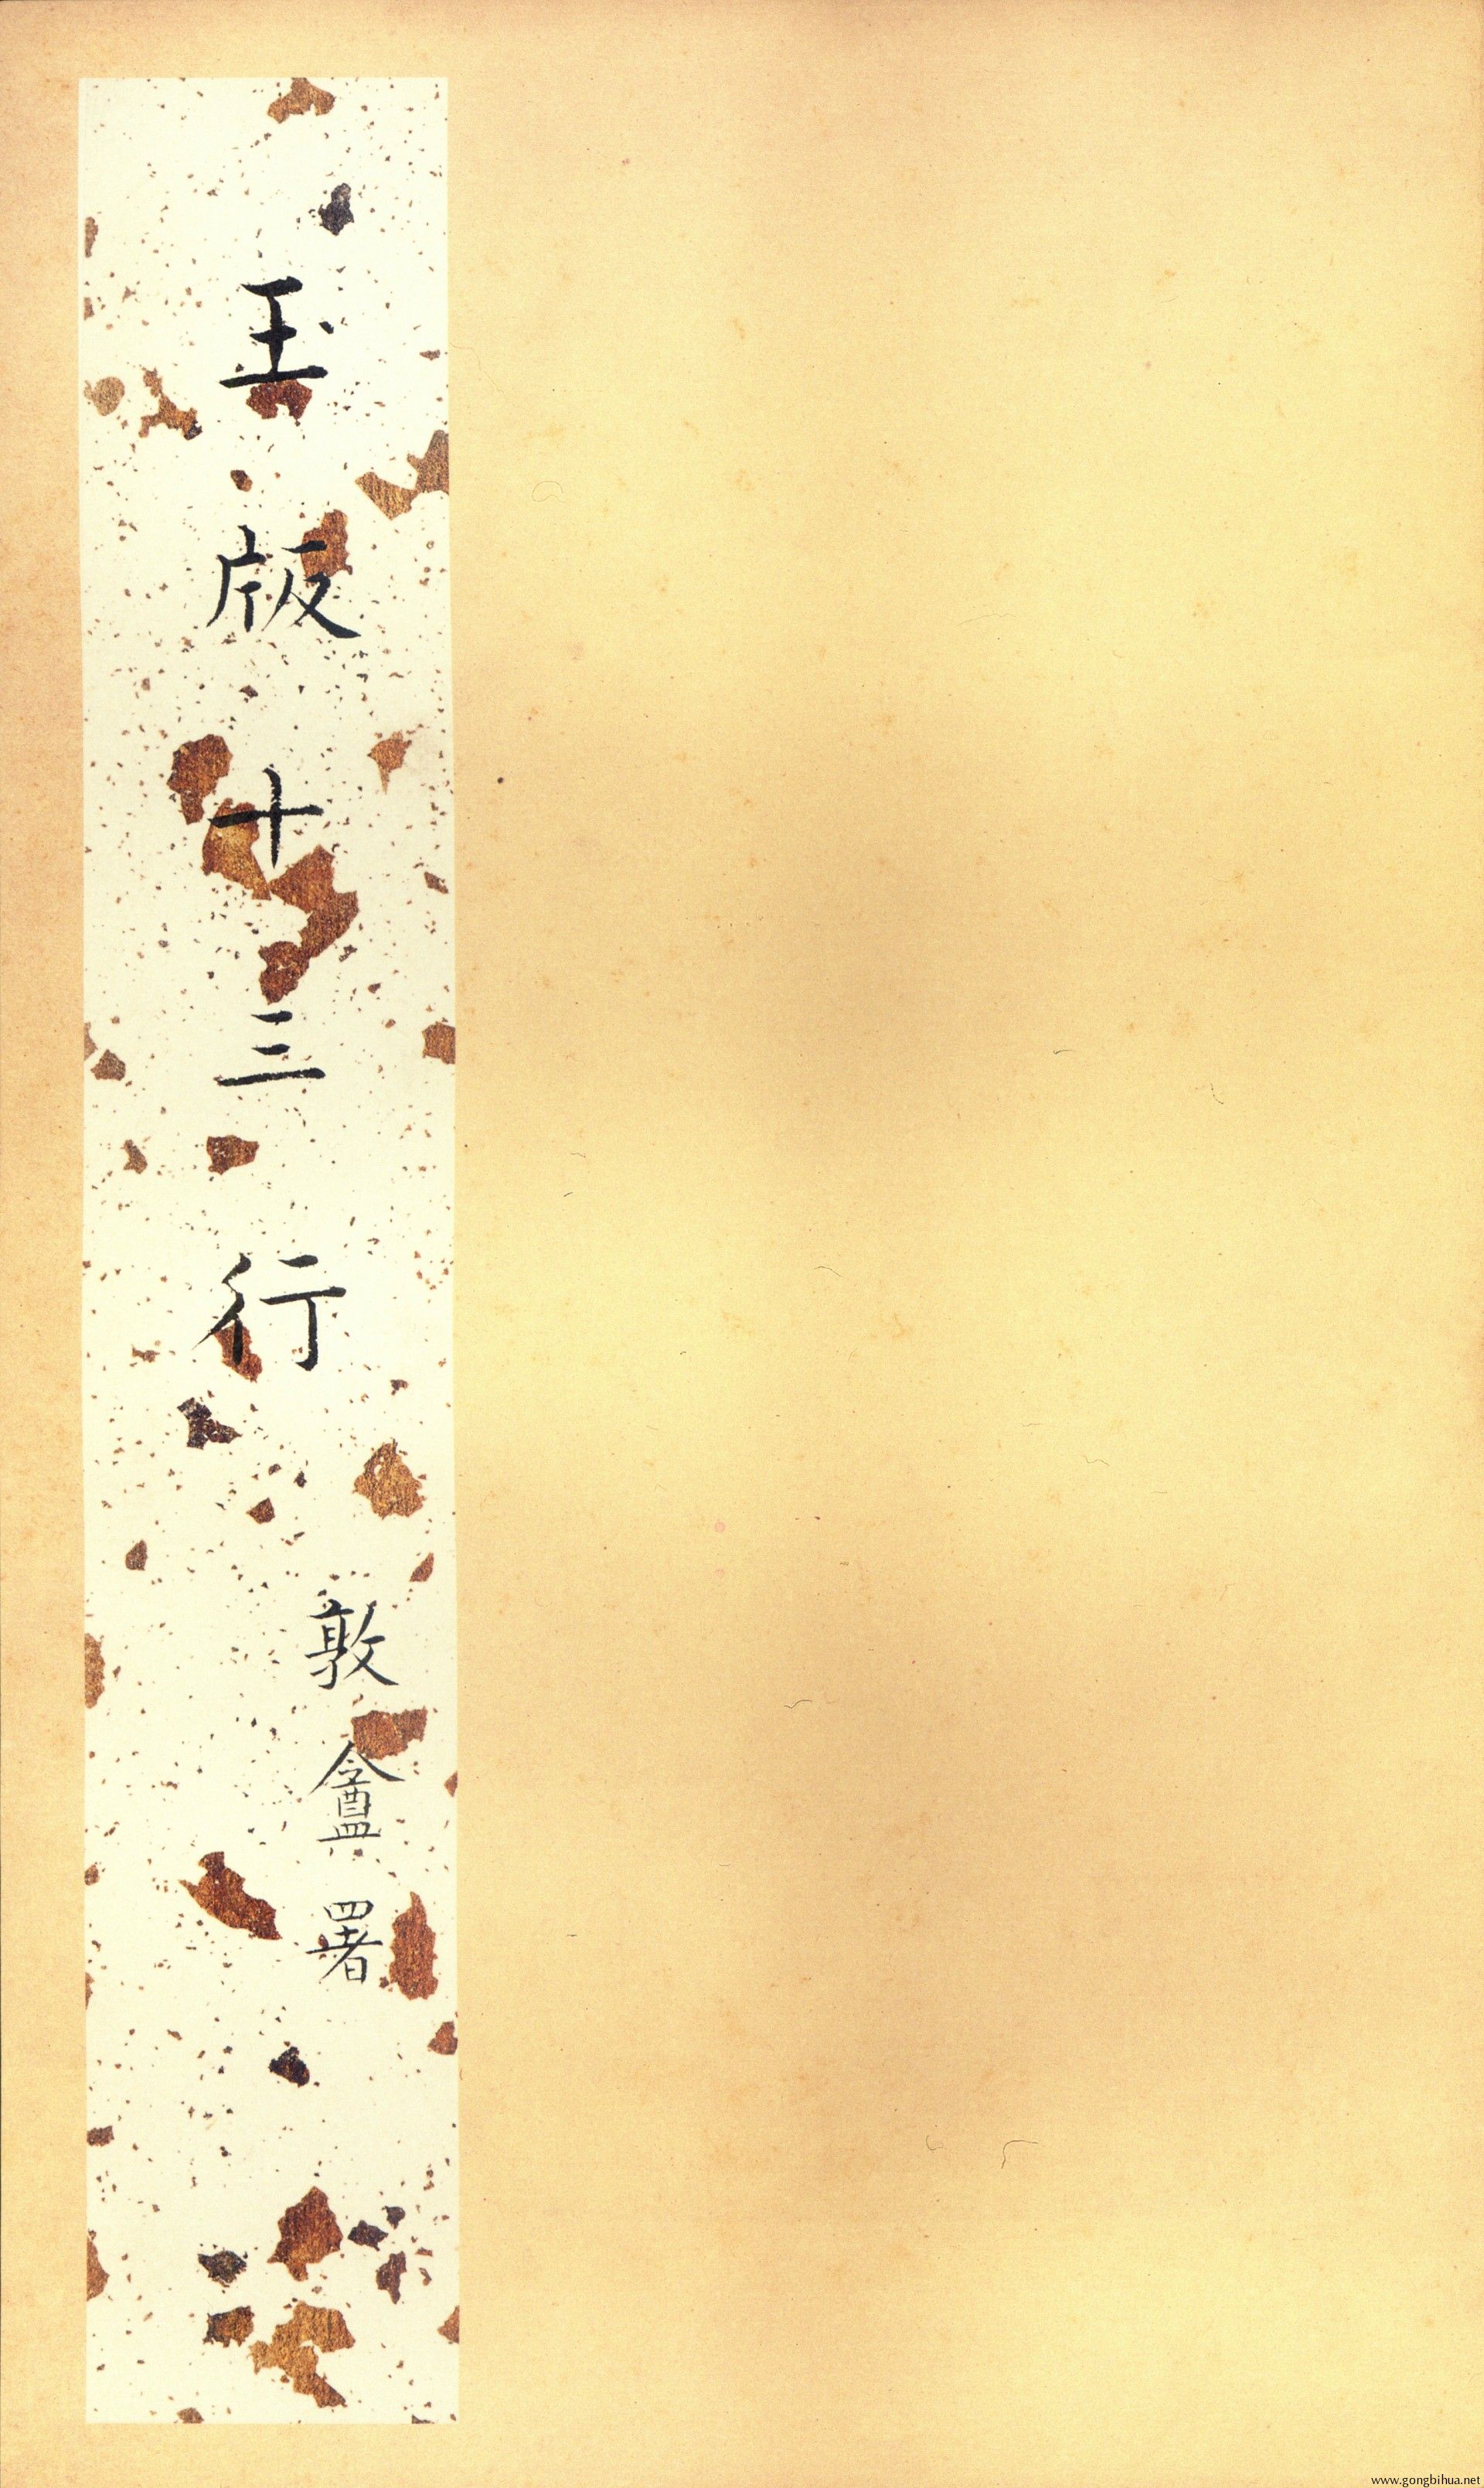 玉版十三行
敦盦署
www.gongbihua.net